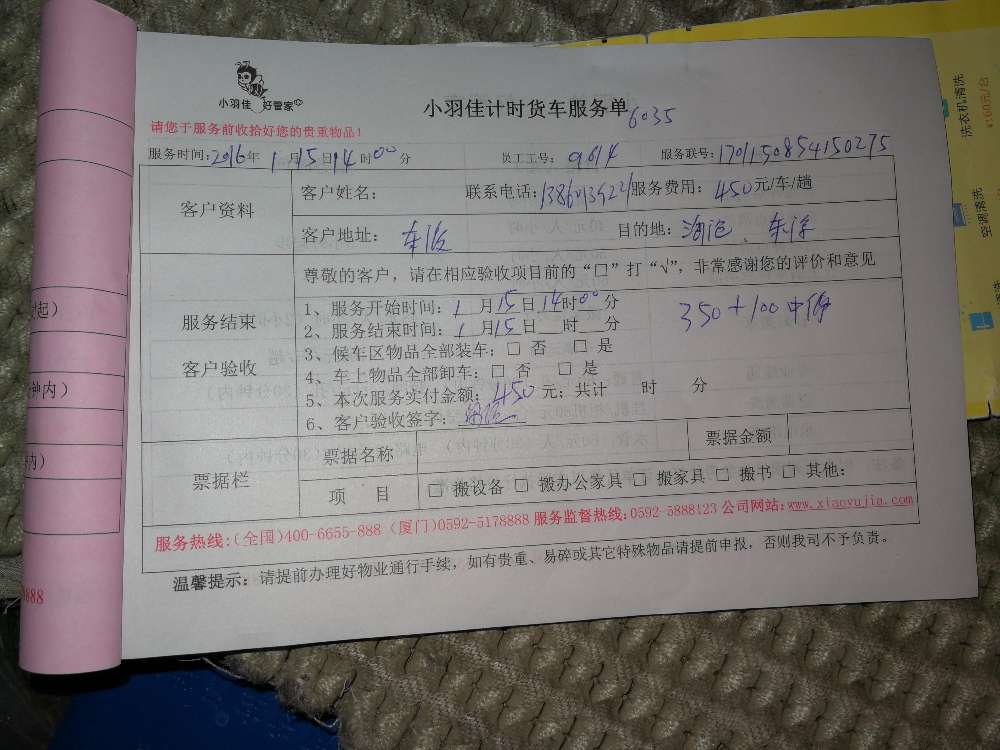 小羽佳 好管家
小羽佳计时货车服务单
6035
请您于服务前收拾好您的贵重物品!
服务时间:2016年1月15日14时00分 员工工号: 9614 服务联号:1701150854150275
客户资料
客户姓名: 联系电话: 服务费用: 450元/车/趟
客户地址: 目的地: 海沧、
尊敬的客户,请在相应验收项目前的“□”打“√”,非常感谢您的评价和意见
服务结束
客户验收
1、服务开始时间:1月15日14时00分
2、服务结束时间:1月15日 时 分
350+100中停
3、候车区物品全部装车:□ 否 □ 是
4、车上物品全部卸车:□ 否 □ 是
5、本次服务实付金额:450元;共计 时 分
6、客户验收签字:
票据栏
票据名称 票据金额
项 目 □ 搬设备 □ 搬办公家具 □ 搬家具 □ 搬书 □ 其他:
服务热线:(全国)400-6655-888 (厦门)0592-5178888 服务监督热线:0592-5888123 公司网站:www.xiaoyujia.com
温馨提示:请提前办理好物业通行手续,如有贵重、易碎或其它特殊物品请提前申报,否则我司不予负责。
起)
钟内)
内)
888
洗衣机清洗
160元/台
空调清洗